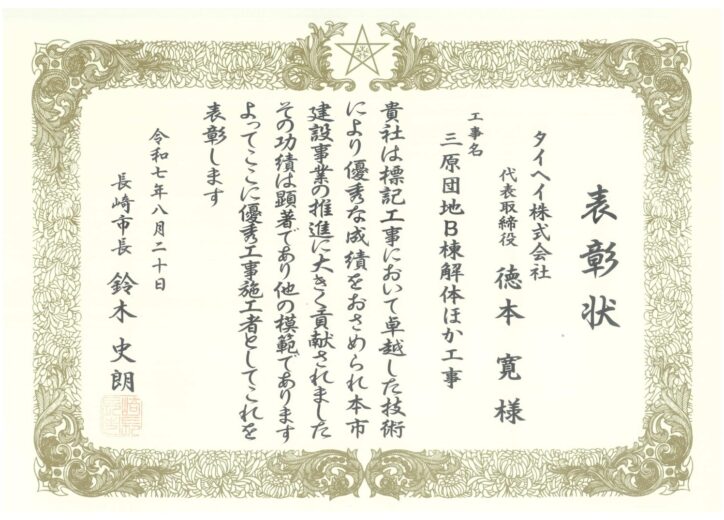 表彰状
タイヘイ株式会社
代表取締役 徳本 寛 様
工事名
三原団地B棟解体ほか工事
貴社は標記工事において卓越した技術
により優秀な成績をおさめられ本市
建設事業の推進に大きく貢献されました
その功績は顕著であり他の模範であります
よってここに優秀工事施工者としてこれを
表彰します
令和七年八月二十日
長崎市長 鈴木 史朗